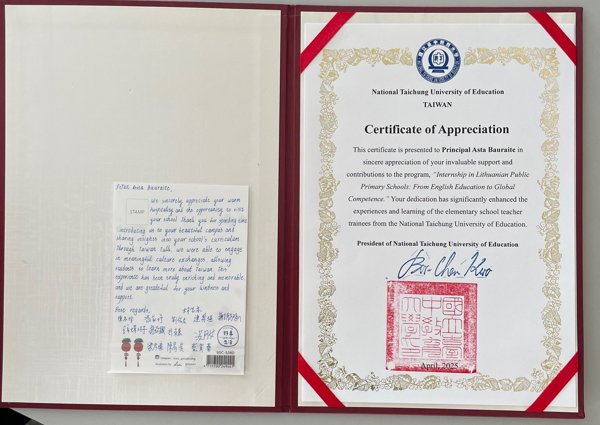 Asta Bauraite,
STAMP
We sincerely appreciate your warm
hospitality and the opportunity to visit
your school. Thank you for spending time
introducing us to your beautiful campus and
sharing insights into your school's curriculum.
Through Taiwan talk, we were able to engage
in meaningful culture exchanges, allowing
students to learn more about Taiwan. This
experience has been truly enriching and memorable,
and we are grateful for your kindness and
support.
Best regards,
National Taichung University of Education
TAIWAN
Certificate of Appreciation
This certificate is presented to Principal Asta Bauraite in
sincere appreciation of your invaluable support and
contributions to the program, "Internship in Lithuanian Public
Primary Schools: From English Education to Global
Competence." Your dedication has significantly enhanced the
experiences and learning of the elementary school teacher
trainees from the National Taichung University of Education.
President of National Taichung University of Education
國立臺
中教育
大學
April, 2025